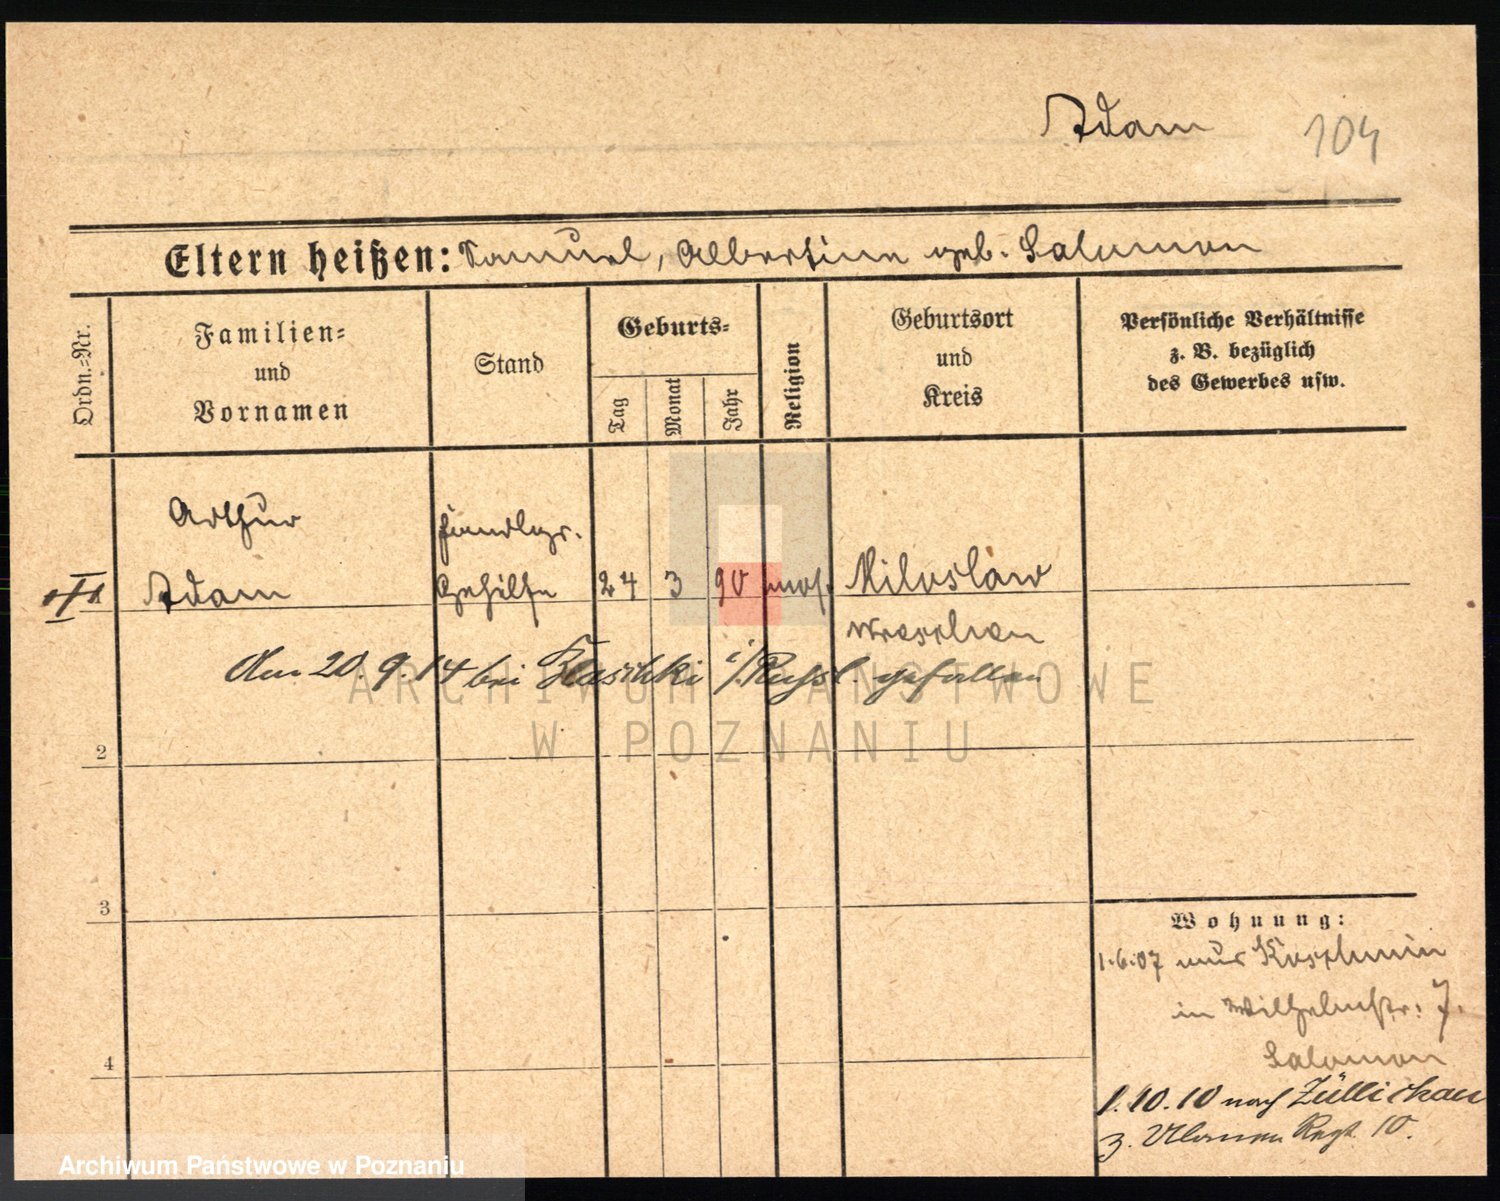 Adam 104
Eltern heißen: Samuel, Albertine geb. Salomon
Ordn.=Nr.
Familien=
und
Vornamen
Stand
Geburts=
Tag
Monat
Jahr
Religion
Geburtsort
und
Kreis
Persönliche Verhältnisse
z. B. bezüglich
des Gewerbes usw.
Arthur
Adam
Handlgs.
Gehilfe
24 3 90 mos.
Miloslaw
Wreschen
Am 20. 9. 14 bei i/Russl. gefallen
2
3
4
Wohnung:
1.6.07 aus Koschmin
in Wilhelmstr. 7.
Salomon
1.10.10 nach Züllichau
z. Ulanen Regt. 10.
ARCHIWUM PAŃSTWOWE
W POZNANIU
Archiwum Państwowe w Poznaniu